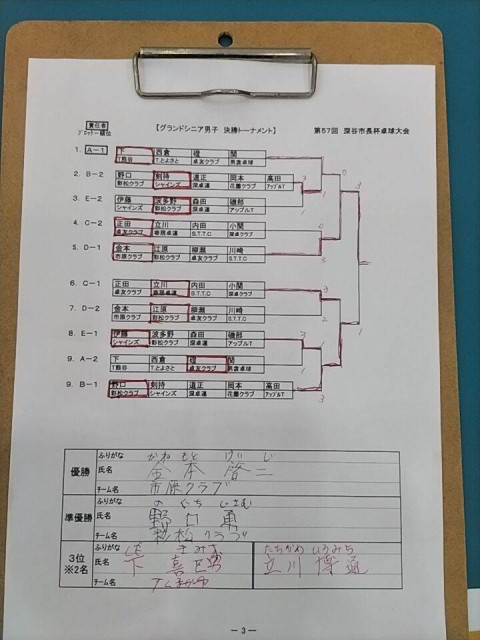 責任者
ブロック順位
【グランドシニア男子 決勝トーナメント】
第57回 深谷市長杯卓球大会
1. A-1 下 西倉 礎 関
T熊谷 T.とよさと 卓友クラブ 男衾卓球
2. B-2 野口 剣持 道正 岡本 高田
彩松クラブ シャインズ 深卓連 花園クラブ アップルT
3. E-2 伊藤 波多野 森田 磯部
シャインズ 彩松クラブ 深卓連 アップルT
4. C-2 正田 立川 内田 小関
卓友クラブ 寄居卓連 S.T.T.C 深卓クラブ
5. D-1 金本 江原 柳瀬 川崎
市原クラブ 彩松クラブ 深卓連 S.T.T.C
6. C-1 正田 立川 内田 小関
卓友クラブ 寄居卓連 S.T.T.C 深卓クラブ
7. D-2 金本 江原 柳瀬 川崎
市原クラブ 彩松クラブ 深卓連 S.T.T.C
8. E-1 伊藤 波多野 森田 磯部
シャインズ 彩松クラブ 深卓連 アップルT
9. A-2 下 西倉 礎 関
T熊谷 T.とよさと 卓友クラブ 男衾卓球
9. B-1 野口 剣持 道正 岡本 高田
彩松クラブ シャインズ 深卓連 花園クラブ アップルT
優勝
ふりがな かねもと けいじ
氏名 金本 啓二
チーム名 市原クラブ
準優勝
ふりがな のぐち いさむ
氏名 野口 勇
チーム名 彩松クラブ
3位
※2名
ふりがな きみお たちかわ ひろみち
氏名 下 立川 博通
チーム名
- 3 -